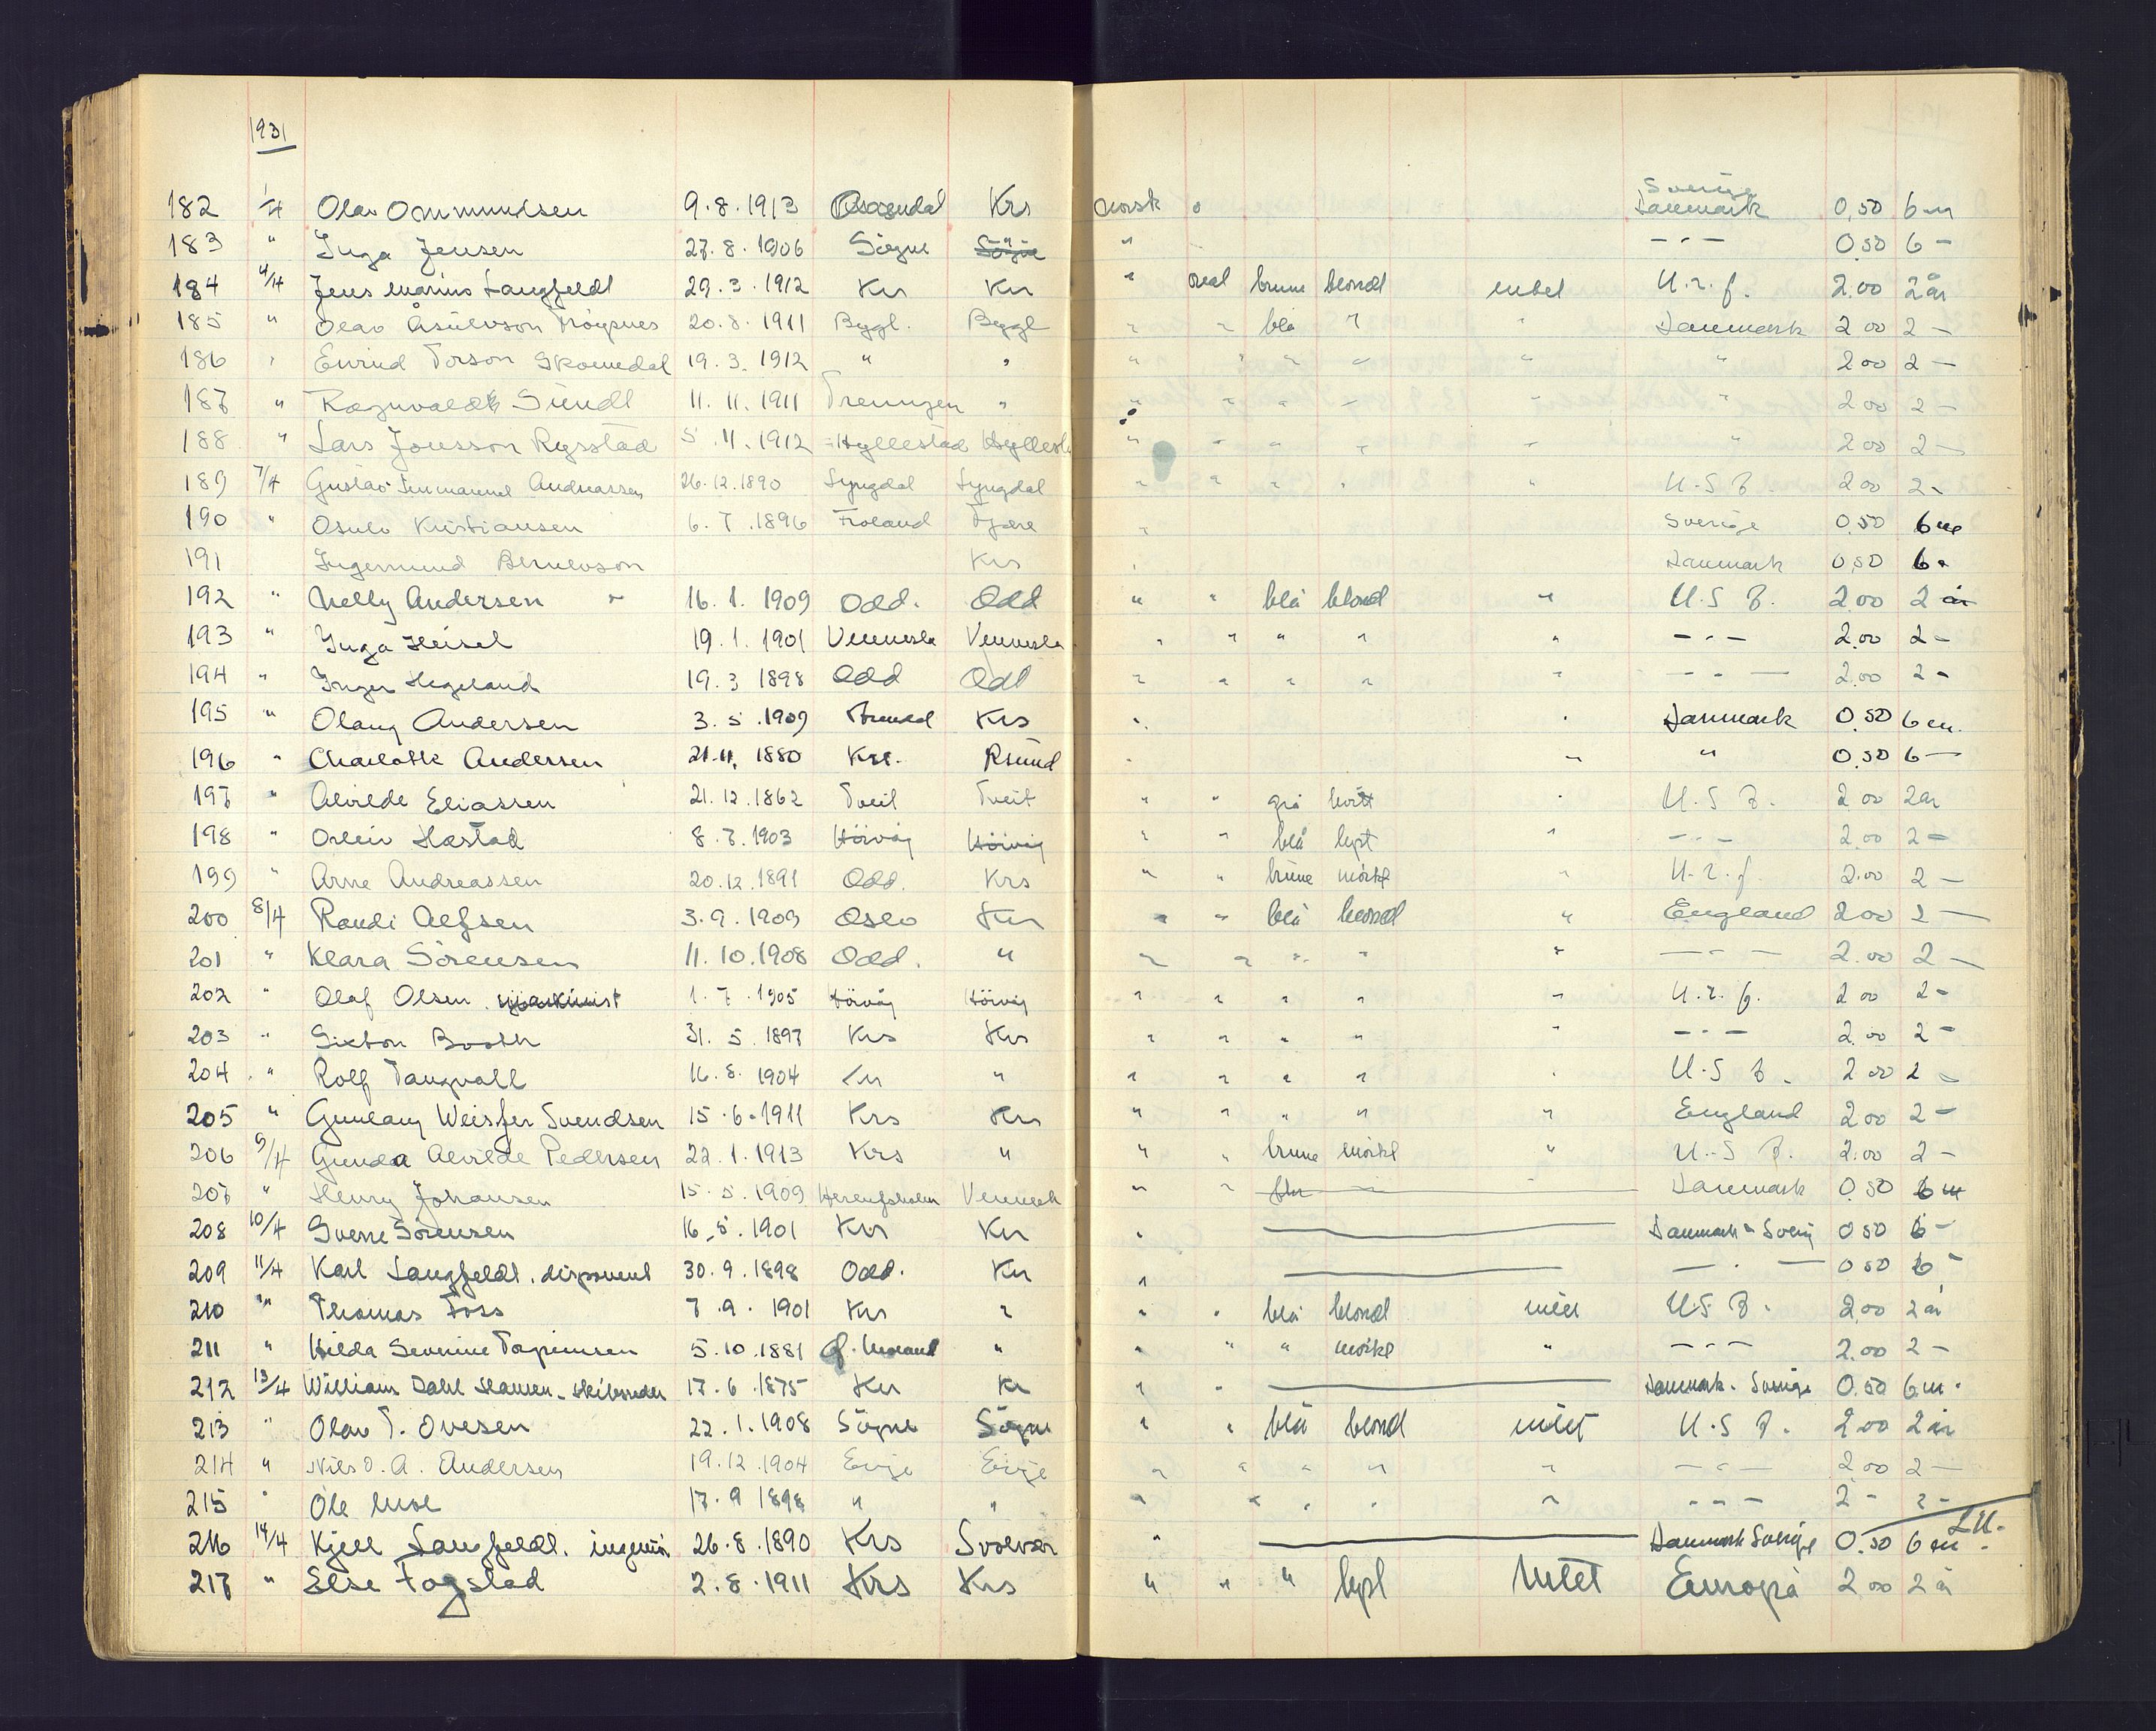 1931
182 1/4 Olav Ommundsen 9.8.1913 Krs norsk o Sverige Danmark 0,50 6 m
183 " Inga Jensen 27.8.1906 Sögne Sögne " - " - 0.50 6 -
184 4/4 Jens Marius Langfeldt 29.3.1912 Kr Kr " oval brune blond intet U.r.f. 2.00 2 år
185 " Olav 20.8.1911 Bygl. Bygl " " blå " " Danmark 2 00 2 -
186 " Eivind Torson Skomedal 19.3.1912 " " " " " " " " 2 00 2 -
187 " Ragnvald Sundt 11.11.1911 " " " " " " " 2 00 2 -
188 " Lars Jonsson Rysstad 5.11.1912 Hyllestad Hyllest " " " " " " 2 00 2 -
189 7/4 Gustav Emmanuel Andreassen 26.12.1890 Lyngdal Lyngdal " " " " " U.S.A. 2 00 2 -
190 " Osulv Kristiansen 6.7.1896 Froland Tjøre " Sverige 0.50 6 m
191 Krs " Danmark 0,50 6 "
192 " Nelly Andersen 16.1.1909 Odd. Odd " " blå blond " U.S.A. 2.00 2 år
193 " Inga Heisel 19.1.1901 Vennesla Vennesla " " " " " - " - 2.00 2 -
194 " Inger Hegeland 19.3 1898 Odd Odd " " " " " - " - 2.00 2 -
195 " Olaug Andersen 3.5.1909 Krs " " Danmark 0.50 6 m.
196 " Charlotte Andersen 21.11. 1880 Krs. Rsund " " " 0.50 6 -
197 " Alvilde Eliassen 21.12.1862 Tveit Tveit " " grå hvitt " U.S.A. 2.00 2 år
198 " Orleiv Hæstad 8.7.1903 Hövåg Hövåg " " blå lyst " - " - 2.00 2 -
199 " Arne Andreassen 20.12.1891 Odd. Krs " " brune mörkt " U.r.f. 2.00 2 -
200 8/4 Randi Alfsen 3.9.1909 Oslo Kr " " blå blond " England 2 00 2 -
201 " Klara Sörensen 11.10.1908 Odd. " " " " " " - " - 2.00 2 -
202 " Olaf Olsen maskinist 1.7.1905 Hövåg Hövåg " " " " " U.r.f. 2 00 2 -
203 " Sixton Booth 31.5.1897 Krs Krs " " " " " - " - 2.00 2 -
204 " Rolf Tangvall 16.8.1904 Kr " " " " " " U.S.A. 2 00 2 -
205 " Gunlaug Weisser Svendsen 15.6.1911 Krs Krs " " " " " England 2.00 2 -
206 9/4 Gunda Alvilde Pedersen 22.1.1913 Krs " " " brune mörkt " U.S.A. 2.00 2 -
207 " Henry Johansen 15.5.1909 Vennesla " " Danmark 0.50 6 m
208 10/4 Sverre Sörensen 16.5.1901 Krs Kr " Danmark - Sverig 0 50 6 -
209 11/4 Karl Langfeldt, disponent 30.9.1898 Odd. Kr " - " - 0 50 6 -
210 " Thomas Foss 7.9.1901 Krs " " " blå blond intet U.S.A. 2.00 2 år
211 " Hilda Severine 5.10.1881 " " " " mörkt " - " - 2.00 2 -
212 13/4 William Dahl Hansen - skibsreder 17.6.1875 Kr Kr " " Danmark - Sverige 0.50 6 m.
213 " Olav T. Ovesen 22.1.1908 Sögne Sögne " " blå blond intet U.S.A. 2 00 2 år
214 " Nils O. A. Andersen 19.12.1904 Evje Evje " " " " " - " - 2 00 2 -
215 " Ole 17.9 1898 " " " " " " " - " - 2 - 2 -
216 14/4 Kjell Langfeldt. ingeniör 26.8.1890 Krs Svolvær " Danmark Sverige 0.50 6 m.
217 " Else Fogstad 2.8.1911 Krs Krs " " " lyst Intet Europa 2 00 2 år